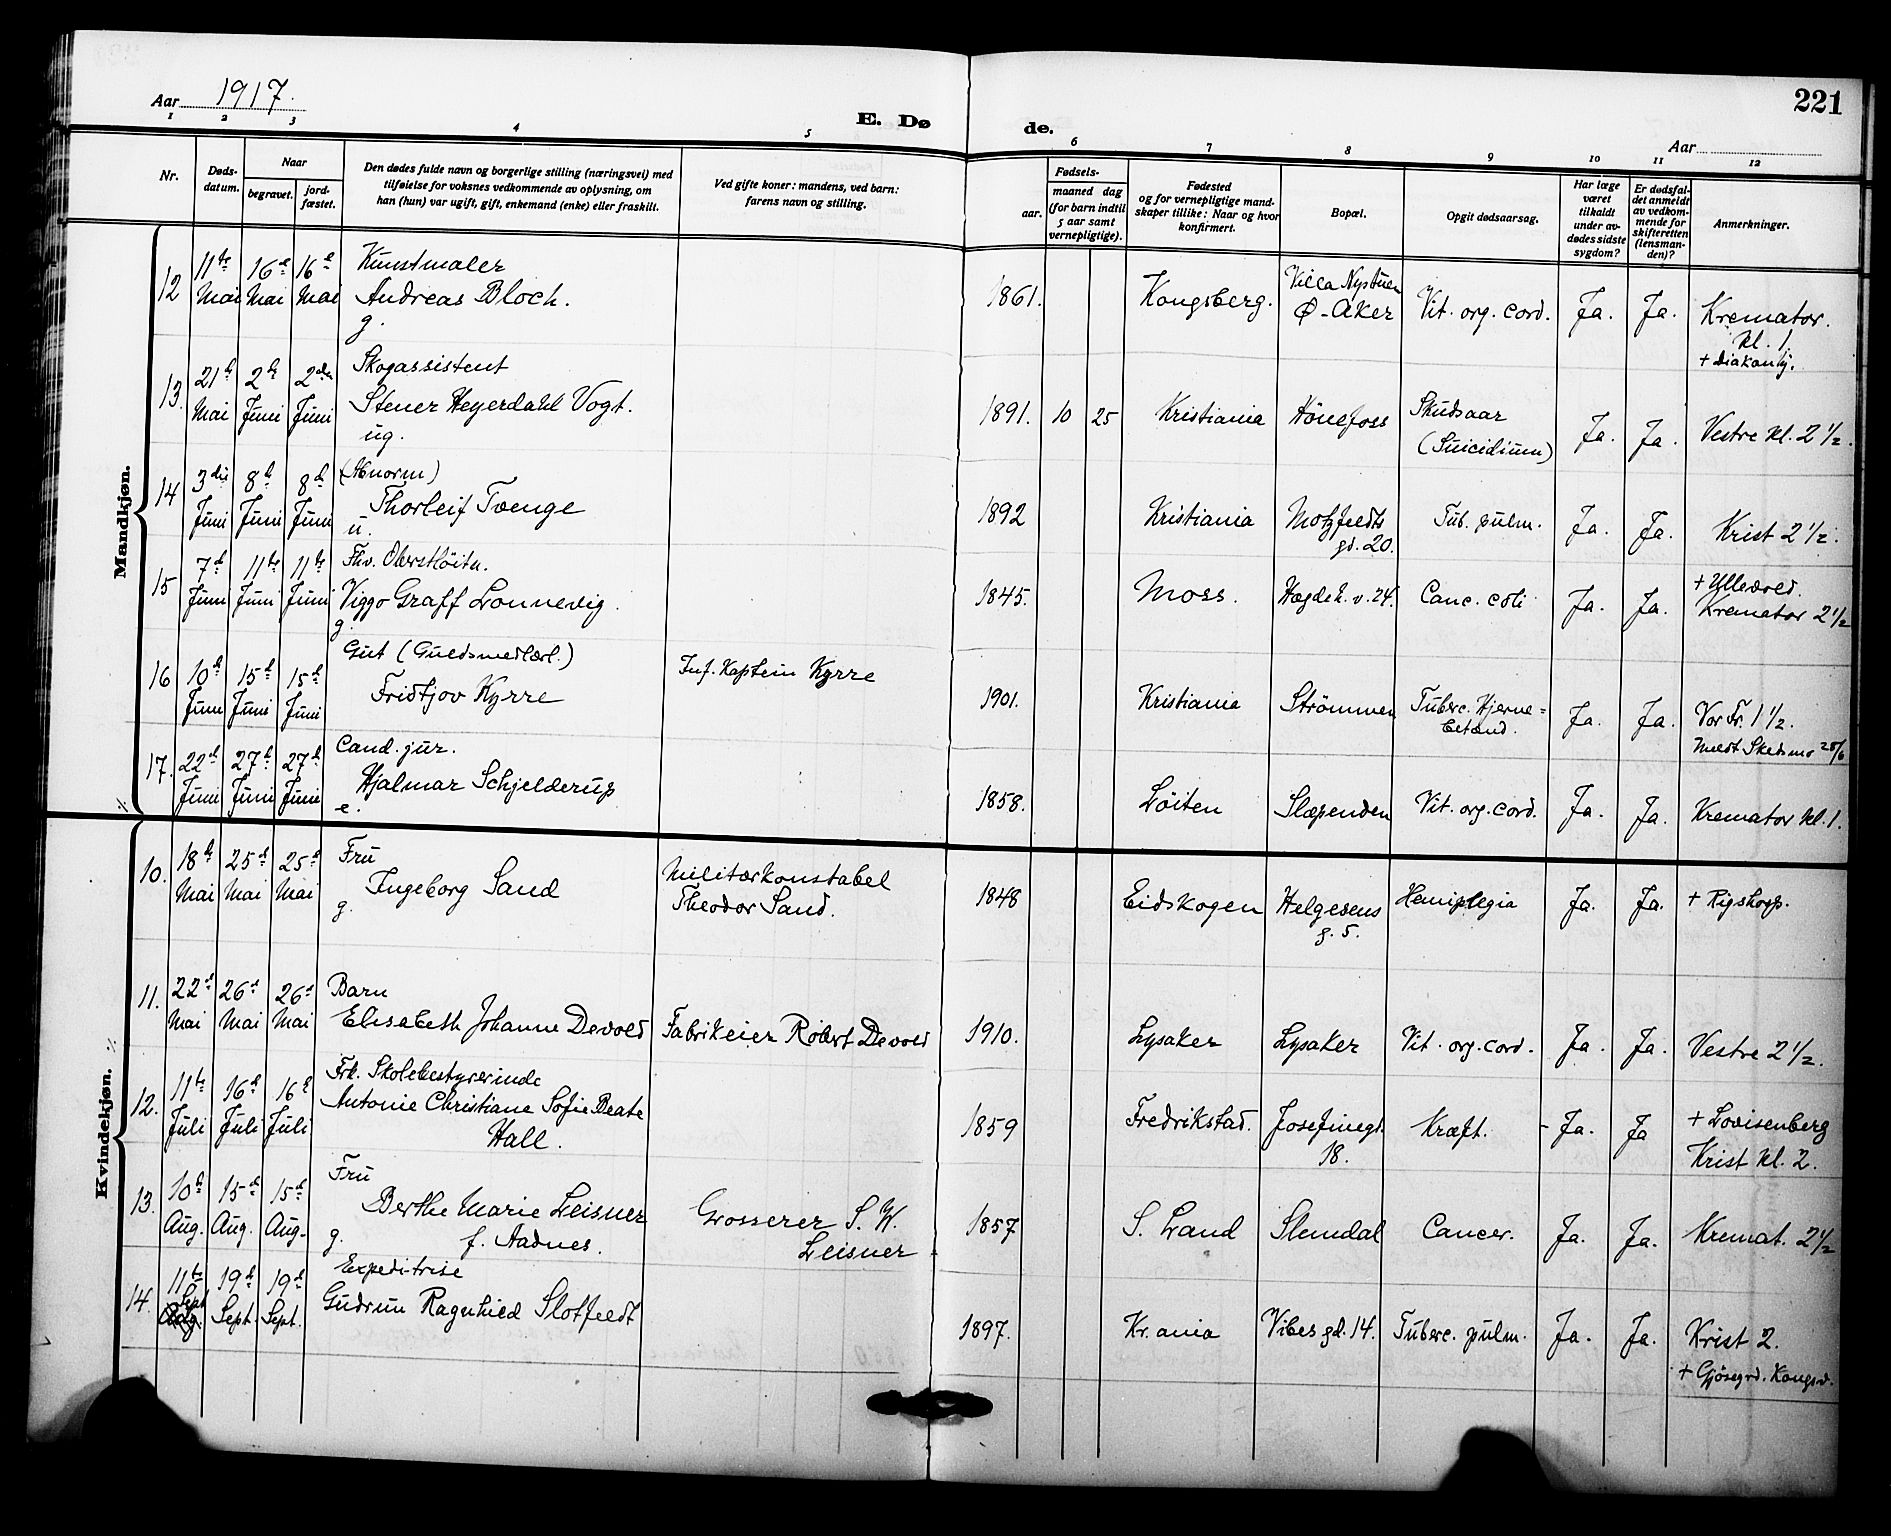 Aar 1917.
E. Dø
de.
221
Aar
1 2 3 4 5 6 7 8 9 10 11 12
Nr.
Døds-
datum.
Naar
begravet.
jord-
fæstet.
Den dødes fulde navn og borgerlige stilling (næringsvei) med
tilføielse for voksnes vedkommende av oplysning, om
han (hun) var ugift, gift, enkemand (enke) eller fraskilt.
Ved gifte koner: mandens, ved barn:
farens navn og stilling.
Fødsels-
aar.
maaned dag
(for barn indtil
5 aar samt
vernepligtige).
Fødested
og for vernepligtige mand-
skaper tillike: Naar og hvor
konfirmert.
Bopæl.
Opgit dødsaarsag.
Har læge
været
tilkaldt
under av-
dødes sidste
sygdom?
Er dødsfal-
det anmeldt
av vedkom-
mende for
skifteretten
(lensman-
den)?
Anmerkninger.
Mandkjøn.
12 11te Mai 16de Mai 16de Mai
Kunstmaler
Andreas Bloch.
g.
1861. Kongsberg. Villa Nystuen
Ø-Aker
Vit. org. cord. Ja. Ja. Kremator.
kl. 1
+ Diakonhj.
13. 21de Mai 2den Juni 2den Juni
Skogassistent
Stener Heyerdahl Vogt.
ug.
1891. 10 25 Kristiania Hönefoss Skudsaar
(Suicidium)
Ja. Ja. Vestre kl. 2 1/2.
14 3die Juni 8de Juni 8de Juni
(Abnorm)
Thorleif Tvenge
u.
1892 Kristiania Motzfeldts
gd. 20.
Tub. pulm. Ja. Ja. Krist 2 1/2.
15 7de Juni 11te Juni 11te Juni
Fhv. Oberstlöitn.
Viggo Graff Lonnevig.
g.
1845. Moss. Hægdeh. v. 24. Canc. coli Ja. Ja. + Ullevold.
Kremator 2 1/2
16 10de Juni 15de Juni 15de Juni
Gut (Guldsmedlærl.)
Fridtjov Kyrre
Inf. Kaptein Kyrre
1901. Kristiania Strömmen Tuberc. Hjerne=
betænd.
Ja. Ja. Vor Fr. 1 1/2.
Meldt Skedsmo 25/6
17. 22de Juni 27de Juni 27de Juni
Cand. jur.
Hjalmar Schjelderup
e.
1858. Löiten Slæpenden Vit. org. cord. Ja. Ja. Kremator kl. 1.
Kvindekjøn.
10. 18de Mai 25de Mai 25de Mai
Fru
Ingeborg Sand
g.
Militærkonstabel
Theodor Sand.
1848 Eidskogen Helgesens
g. 5.
Hemiplegia Ja. Ja. + Rigshosp.
11. 22de Mai 26de Mai 26de Mai
Barn
Elisabeth Johanne Devold
Fabrikeier Robert Devold
1910. Lysaker Lysaker Vit. org. cord. Ja. Ja. Vestre 2 1/2.
12. 11te Juli 16de Juli 16de Juli
Frk. Skolebestyrerinde
Antonie Christiane Sofie Beate
Hall.
1859 Fredrikstad. Josefinegd.
18.
Kræft. - Ja. Ja + Lovisenberg
Krist kl. 2.
13. 10de Aug. 15de Aug. 15de Aug.
Fru
Berthe Marie Leisner
g. f. Aadnes.
Grosserer S. W.
Leisner
1857 S. Land Slemdal Cancer. Ja. Ja. Kremat. 2 1/2
14. 11te Sept Aug. 19de Sept. 19de Sept.
Expeditrise
Gudrun Ragnhild Slotfeldt
1897. Kr.ania Vibes gd. 14. Tuberc. pulm. Ja. Ja. Krist 2.
+ Gjösegrd. Kongsv.